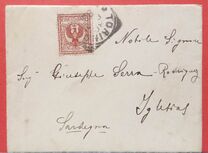 TORIN
Nobile Signor
Sig Giuseppe Serra-Rodriguez
Iglesias
Sardegna